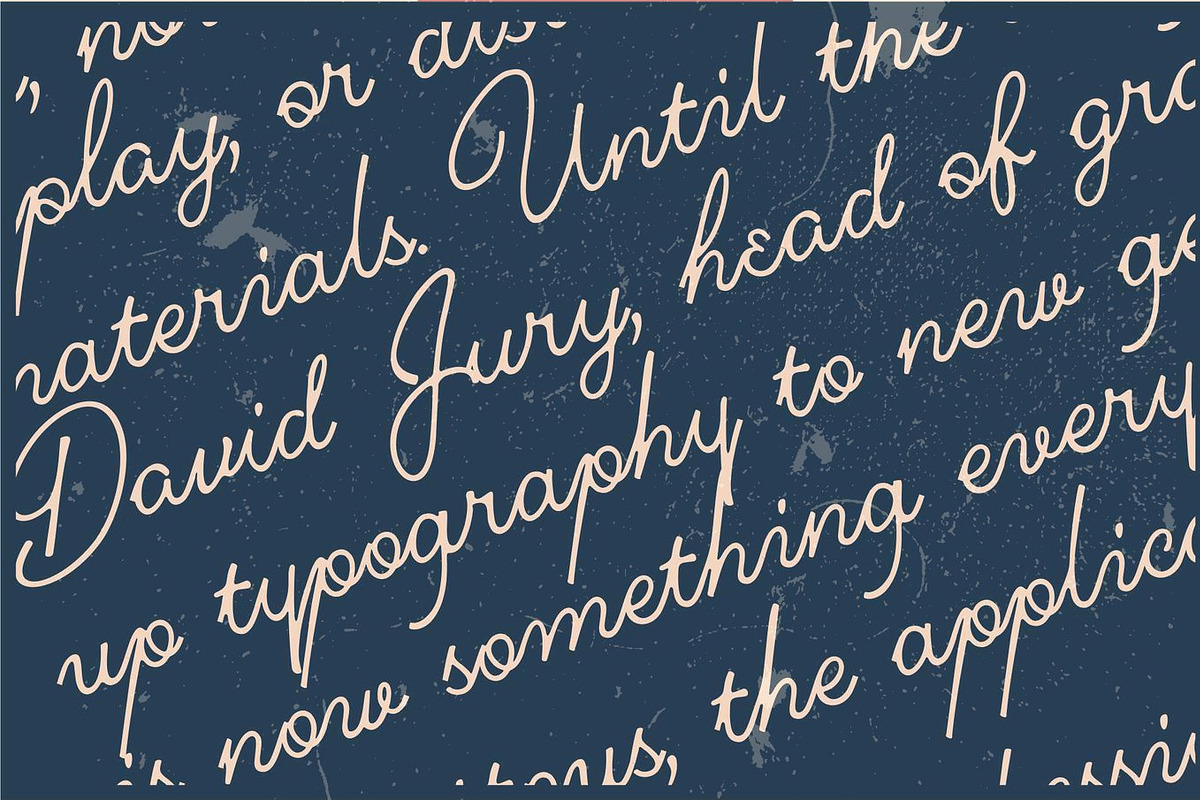 play, or dis
aterials. Until the
David Jury, head of gra
up typography to new ge
is now something every
itous, the applic